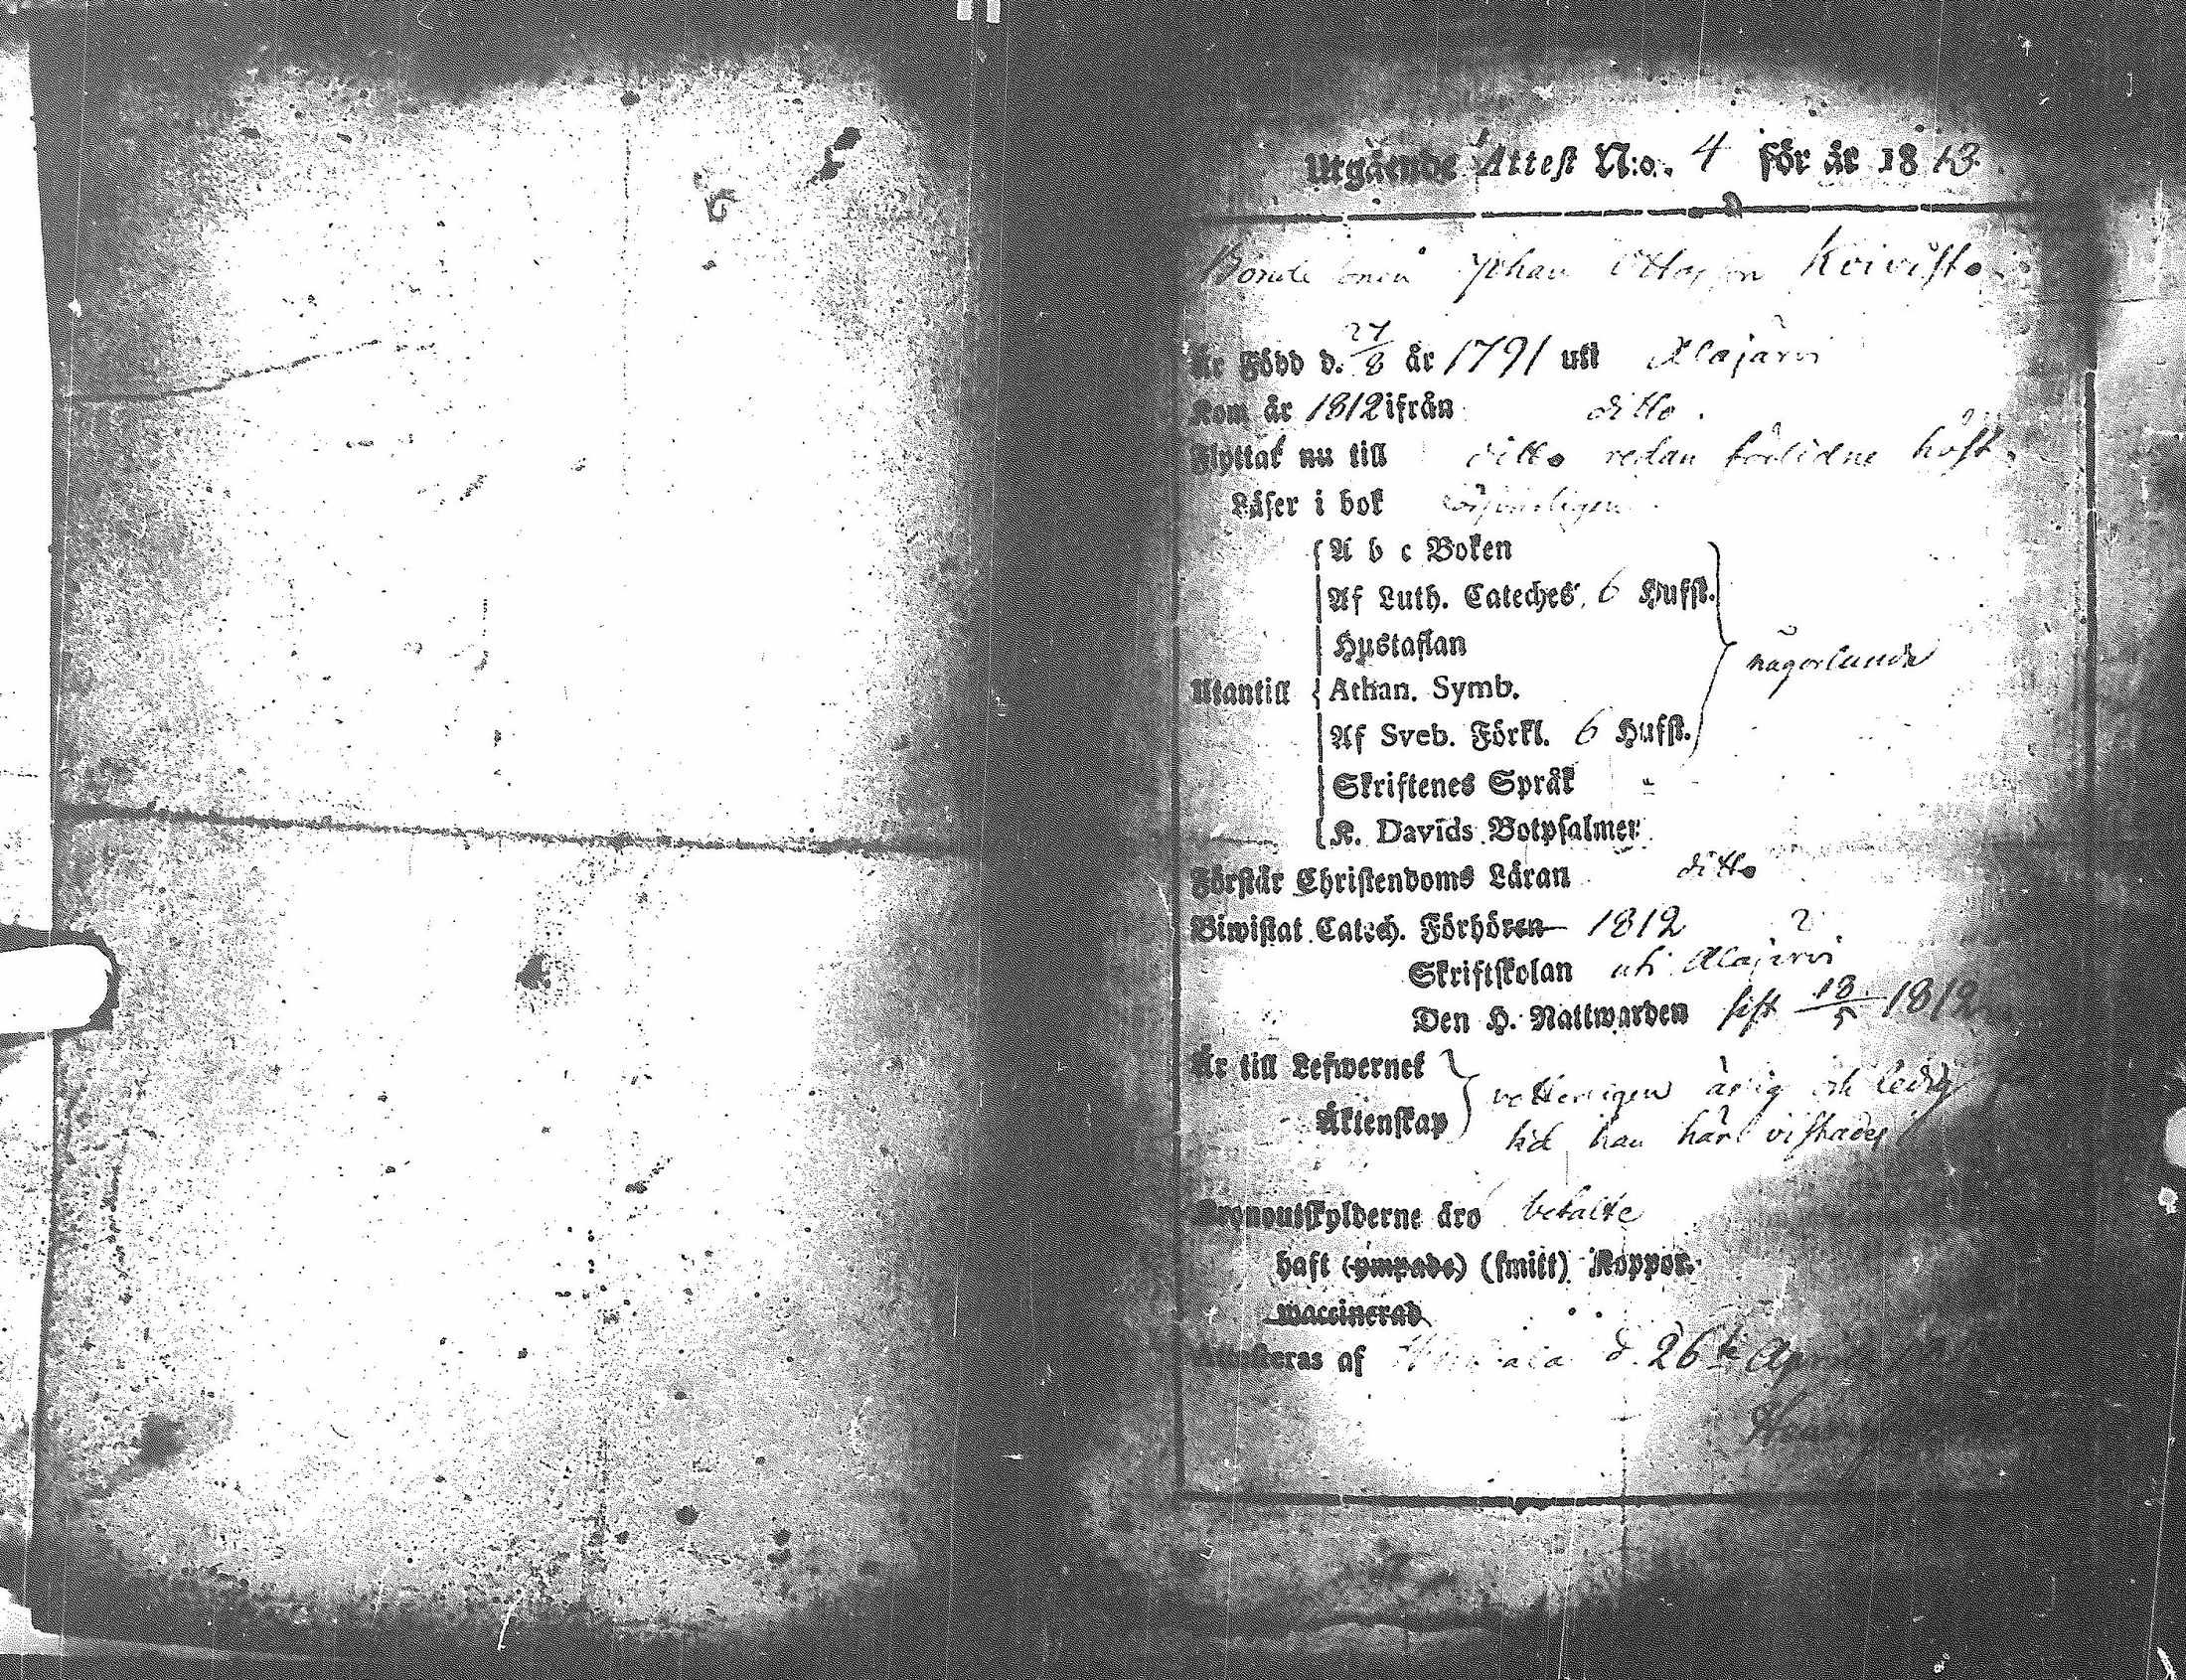 Utgående Attest N:o. 4 för år 1813.
Bonde sonen Johan Ottosson Koivisto
Är Född d. 27/8 år 1791 uti Alajärvi
Kom år 1812 ifrån ditto.
Flyttat nu till ditto redan förlidne höst.
Läser i bok
A b c Boken
Af Luth. Cateches. 6 Hufst.
Hustaflan
Utantill Athan. Symb. någorlunda
Af Sveb. Förkl. 6 Hufst.
Skriftenes Språk
K. Davids Botpsalmer
Förstår Christendoms Läran ditto
Biwistat Catech. Förhören 1812
Skriftskolan uti Alajärvi
Den H. Nattwarden sist 18/5 1812
Är till Lefwernet
Äktenskap
vetterligen ärlig och ledig
tid han här vistades
Kronoutskylderne äro betalte
haft (ympade) (smitt) Koppor.
waccinerad
Attesteras af d. 26te April